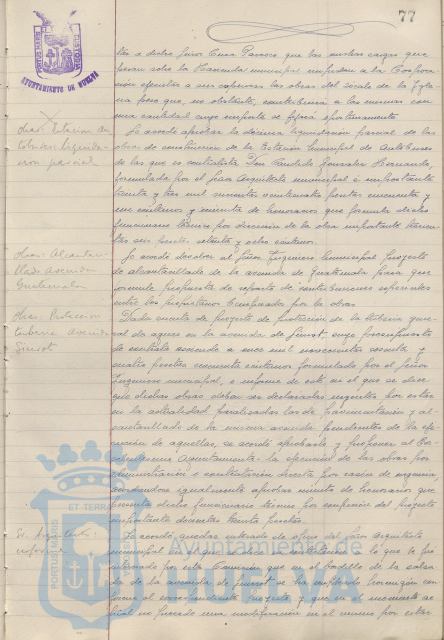 77
AYUNTAMIENTO DE HUELVA
tara a dicho Señor Cura Parroco que las muchas cargas que
pesan sobre la Hacienda municipal impiden a la Corpora-
ción ejecutar a sus expensas las obras del local de la Igle-
sia pero que, no obstante, contribuirá a las mismas con
una cantidad cuyo importe se fijará oportunamente.
Obras Estación Au-
tobuses liquida-
ción parcial
Se acordó aprobar la décima liquidación parcial de las
obras de construcción de la Estación Municipal de Autobuses
de las que es contratista Don Candido González Hernando,
formulada por el Señor Arquitecto municipal e importante
treinta y tres mil veinticuatro pesetas cincuenta y
céntimos y minuta de honorarios que formula dicho
funcionario técnico por dirección de la obra importante
pesetas, setenta y ocho céntimos.
Obras Alcantari-
llado Avenida
Guatemala
Se acordó devolver al Señor Ingeniero Municipal proyecto
de alcantarillado de la avenida de Guatemala para que
formule propuesta de reparto de contribuciones especiales
entre los propietarios beneficiados por la obra.
Obras Protección
tubería Avenida
Girot
Dada cuenta de proyecto de protección de la tubería gene-
ral de aguas en la avenida de Girot, cuyo presupuesto
de contrata asciende a once mil novecientas sesenta y
cuatro pesetas cincuenta céntimos formulado por el Señor
Ingeniero municipal, e informe de este en el que se dice
que dichas obras deben ser declaradas urgentes por estar
en la actualidad paralizadas las de pavimentación y al-
cantarillado de la misma avenida pendientes de la eje-
cución de aquellas, se acordó aprobarlo y proponer al Ex-
celentísimo Ayuntamiento la ejecución de las obras por
administración o contratación directa por razón de urgencia,
acordándose igualmente aprobar minuta de honorarios que
presenta dicho funcionario técnico por confección del proyecto
importante doscientas treinta pesetas.
Sr. Arquitecto:
informe
Se acordó quedar enterado de oficio del Señor Arquitecto
municipal en el que dice en contestación a lo que le fue
interesado por esta Comisión que en el bordillo de la calzada
de la avenida de Girot se ha empleado hormigón con-
forme al correspondiente proyecto y que en el momento ac-
tual no procede una modificación en el mismo por estar
ET TERRAE
PORTUS MARIS
Ayuntamiento de
HUELVA